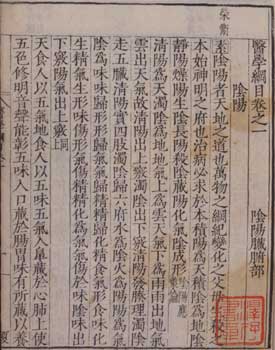 醫學綱目卷之一 陰陽臟腑部
陰陽
素陰陽者天地之道也萬物之綱紀變化之父母生殺之
本始神明之府也治病必求於本積陽為天積陰為地陰
靜陽燥陽生陰長陽殺陰藏陽化氣陰成形陰陽應象論
清陽為天濁陰為地地氣上為雲天氣下為雨雨出地氣
雲出天氣故清陽出上竅濁陰出下竅清陽發腠理濁陰
走五臟清陽實四肢濁陰歸六府水為陰火為陽陽為氣
陰為味味歸形形歸氣氣歸精精歸化精食氣形食味化
生精氣生形味傷形氣傷精精化為氣氣傷於味陰味出
下竅陽氣出上竅同上
天食人以五氣地食人以五味五氣入鼻藏於心肺上使
五色修明音聲能彰五味入口藏於腸胃味有所藏以養